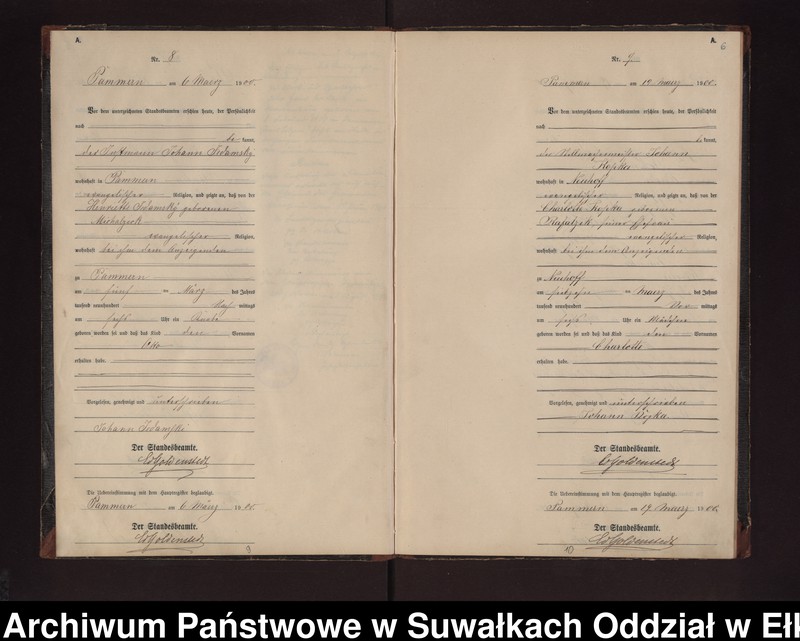 A.
Nr. 8
Pammern am 6 März 1900.
Vor dem unterzeichneten Standesbeamten erschien heute, der Persönlichkeit
nach
be kannt,
der Instmann Johann Sedamsky
wohnhaft in Pammern
evangelischer Religion, und zeigte an, daß von der
Henriette Sedamsky geborenen
Michalzick
evangelischer Religion,
wohnhaft bei ihm dem Anzeigenden
zu Pammern
am fünf ten März des Jahres
tausend neunhundert Nach mittags
um sechs Uhr ein Knabe
geboren worden ist und daß das Kind den Vornamen
Otto
erhalten habe.
Vorgelesen, genehmigt und unterschrieben
Johann Sedamski
Der Standesbeamte.
Goldenstedt
Die Uebereinstimmung mit dem Hauptregister beglaubigt.
Pammern am 6 März 1900.
Der Standesbeamte.
Goldenstedt
9
A.
6
Nr. 9.
Pammern am 17 Maerz 1900.
Vor dem unterzeichneten Standesbeamten erschien heute, der Persönlichkeit
nach
be kannt,
der Johann
wohnhaft in Neuhoff
evangelischer Religion, und zeigte an, daß von der
Charlotte geborenen
seiner Ehefrau
evangelischer Religion,
wohnhaft bei ihm dem Anzeigenden
zu Neuhoff
am ten Maerz des Jahres
tausend neunhundert Vor mittags
um sechs Uhr ein Mädchen
geboren worden ist und daß das Kind den Vornamen
Charlotte
erhalten habe.
Vorgelesen, genehmigt und unterschrieben
Johann
Der Standesbeamte.
Goldenstedt
Die Uebereinstimmung mit dem Hauptregister beglaubigt.
Pammern am 17 Maerz 1900.
Der Standesbeamte.
Goldenstedt
10
Archiwum Państwowe w Suwałkach Oddział w Eł